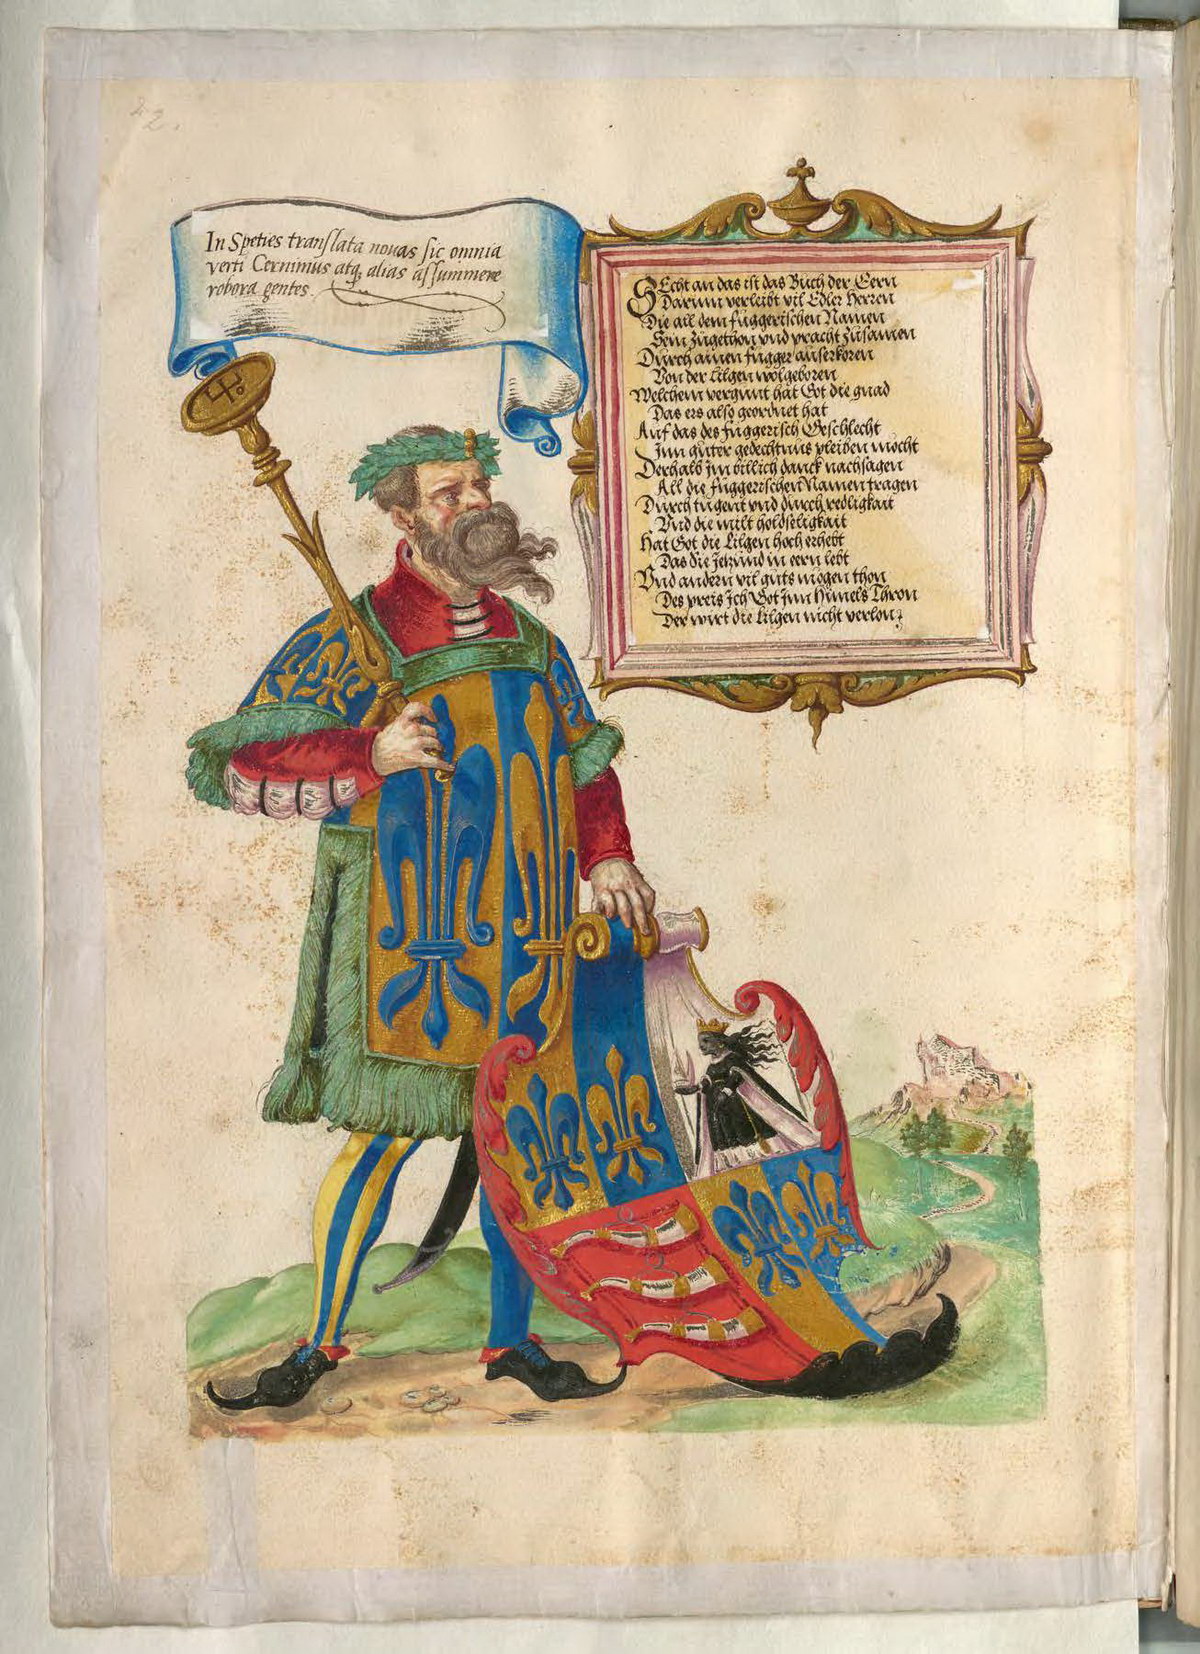 42.
In Speties translata nouas sic omnia
verti Cernimus atq, alias assummere
robora gentes.
SEcht an das ist das Buch der Eern
Darinn verleibt vil Edler Herren
Die all dem fuggerischen Namen
Sein zugethon vnd pracht zusamen
Durch ainen fugger auserkoren
Von der Lilgen wolgeboren
Welchem vergunt hat Got die gnad
Das ers also geordnet hat
Auf das des fuggerisch Geschlecht
Inn guter gedechtnus pleiben möcht
Derhalb im billich danck nachsagen
All die fuggerischen Namen tragen
Durch tugent vnd durch redligkait
Vnd die milt holdseligkait
Hat Got die Lilgen hoch erhebt
Das die Jetzund in eern lebt
Vnd andern vil guts mögen thon
Des preis Ich Got Inn Himels Thron
Der wirt die Lilgen nicht verlon